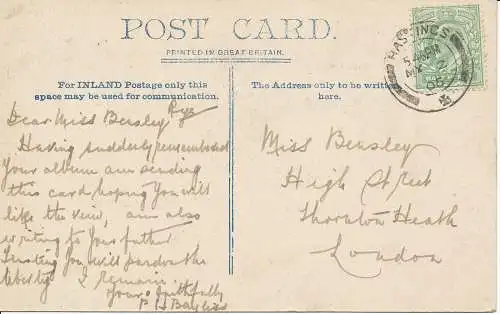 POST CARD.
PRINTED IN GREAT BRITAIN.
For INLAND Postage only this
space may be used for communication.
The Address only to be written
here.
HASTINGS
Rye
Dear Miss Bensley
Having suddenly remembered
Your album am sending
this card hoping You will
like the view, am also
writing to Your father
Trusting You will pardon the
liberty I remain
Yours faithfully
P H
Miss Bensley
High Street
Thornton Heath
London